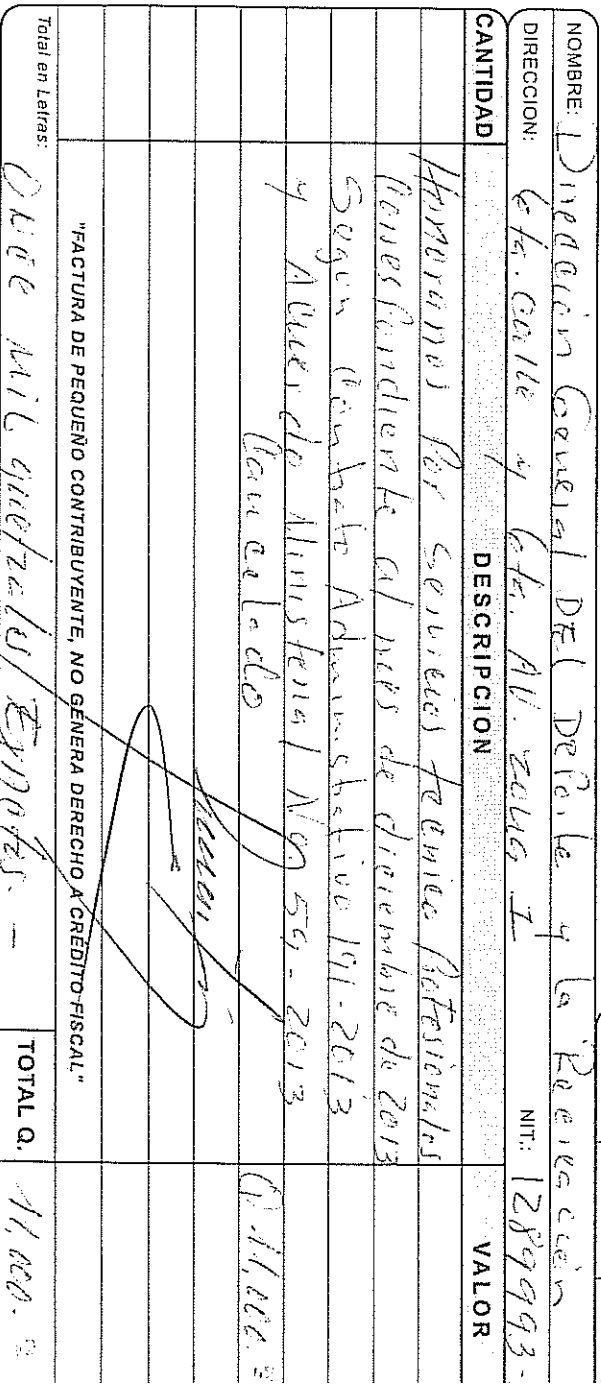 NOMBRE: Dirección General DEl Deporte y la Recreación
DIRECCION: 6ta. Calle y 6ta. AV. zona I NIT.: 1289993-
CANTIDAD DESCRIPCION VALOR
Honorarios Por Servicios tecnico Profesionales
Correspondiente al mes de diciembre de 2013
Según Contrato Administrativo 191-2013
y Acuerdo Ministerial No 59-2013
Cancelado Q.11,000.
"FACTURA DE PEQUEÑO CONTRIBUYENTE, NO GENERA DERECHO A CREDITO FISCAL"
Total en Letras: Once Mil quetzales Exactos. — TOTAL Q. 11,000.